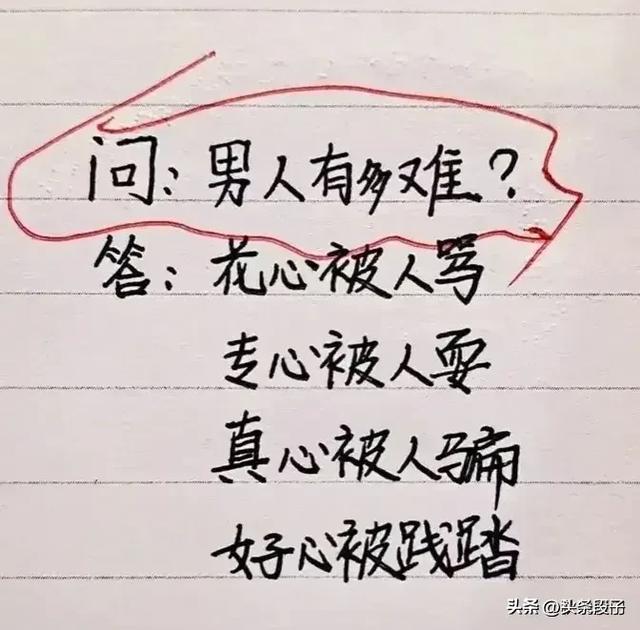 问：男人有多难？
答：花心被人骂
专心被人耍
真心被人骗
好心被践踏
头条 @头条段子